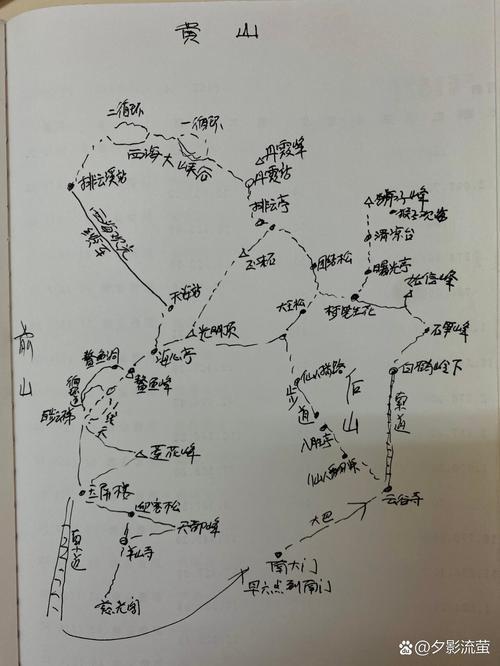 黄山
二循环
一循环
西海大峡谷
丹霞峰
丹霞站
排云溪站
排云亭
狮子峰
猴子观海
清凉台
曙光亭
始信峰
飞来石
团结松
西海观光缆车
天海站
大王松
梦笔生花
石笋峰
光明顶
海心亭
白鹅岭下
前山
鳌鱼洞
鳌鱼峰
仙人指路
步道
后山
索道
一线天
入胜亭
莲花峰
云谷寺
玉屏楼
迎客松
天都峰
大巴
索道
半山寺
南大门
早六点到南门
慈光阁
百度
@夕影流萤